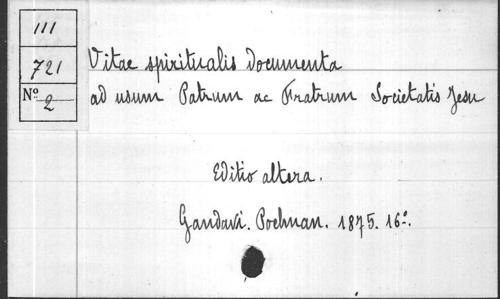 111
721
Nº 2
Vitae spiritualis documenta
ad usum Patrum ac Fratrum Societatis Jesu
Editio altera.
Gandavi. Poelman. 1875. 16º.